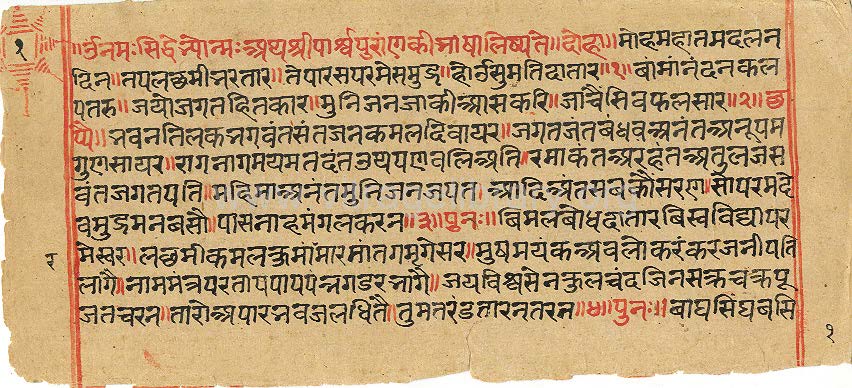 १
नमः सिद्धेभ्योन्मः अथ श्रीपार्श्वपुरांणकीभाषालिष्यते॥दोहा॥मोहमहातमदलन
दिन॥तपलछमीभरतार॥तेपारसपरमेसमुझ॥होऊसुमतिदातार॥१॥बांमांनंदनकल
पतरु॥जयौजगतहितकार॥मुनिजनजाकीआसकरि॥जाचैसिवफलसार॥२॥छ
प्पै॥भवनतिलकभगवंतसंतजनकमलदिवायर॥जगतजंतबंधवअनंतअनूपम
गुणसायर॥रागनागमयमतदंतउथपणवलिअति॥रमाकंतअरहंतअतुलजस
वंतजगतपति॥महिमाअनंतमुनिजनजपत।आदिअंतसबकौंसरण॥सोपरमदे
वमुझमनबसौ॥पासनाहमंगलकरन॥३॥पुनः॥बिमलबोधदातारबिस्वविद्यापर
मेस्वर॥लछमीकमलकुमांमारमातगमृगेसर॥मुषमयंकअवलोकरंकरजनीपति
लागै॥नाममंत्रपरतापपापपन्नगडरभागै॥जयविश्वसेनकुलचंदजिनसक्रचक्रपू
जतचरन॥तारोअपारभवजलधितै॥तुमतरंडतारनतरन॥४॥पुनः॥बाघसिंघबसि
१